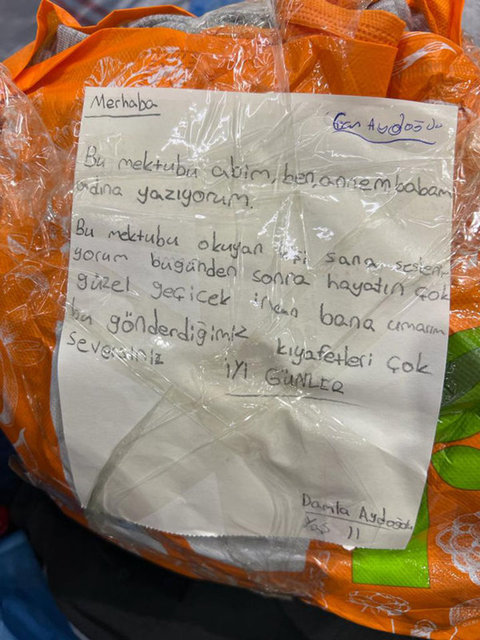 Merhaba
Can Aydoğdu
Bu mektubu abim, ben, annem babam
adına yazıyorum.
Bu mektubu okuyan sana seslen-
yorum bugünden sonra hayatın çok
güzel geçicek inan bana umarım
bu gönderdiğimiz kıyafetleri çok
seversiniz
İYİ GÜNLER
Damla Aydoğdu
Yaş 11